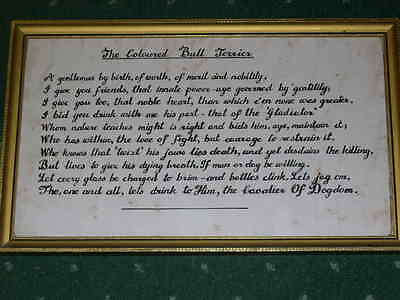 The Coloured Bull Terrier
A gentleman by birth, of worth, of merit and nobility,
I give you friends, that innate power-age governed by gentility,
I give you too, that noble heart, than which e'en none was greater,
I bid you drink with me his part - that of the 'Gladiator'
Whom nature teaches might is right and bids him, aye, maintain it;
Who has within, the love of fight, but courage to restrain it.
Who knows that 'twixt' his jaws lies death, and yet disdains the killing,
But lives to give his dying breath, If man or dog be willing.
Let every glass be charged to brim - and bottles clink, Lets jog em.
The, one and all, lets drink to Him, the Cavalier Of Dogdom.